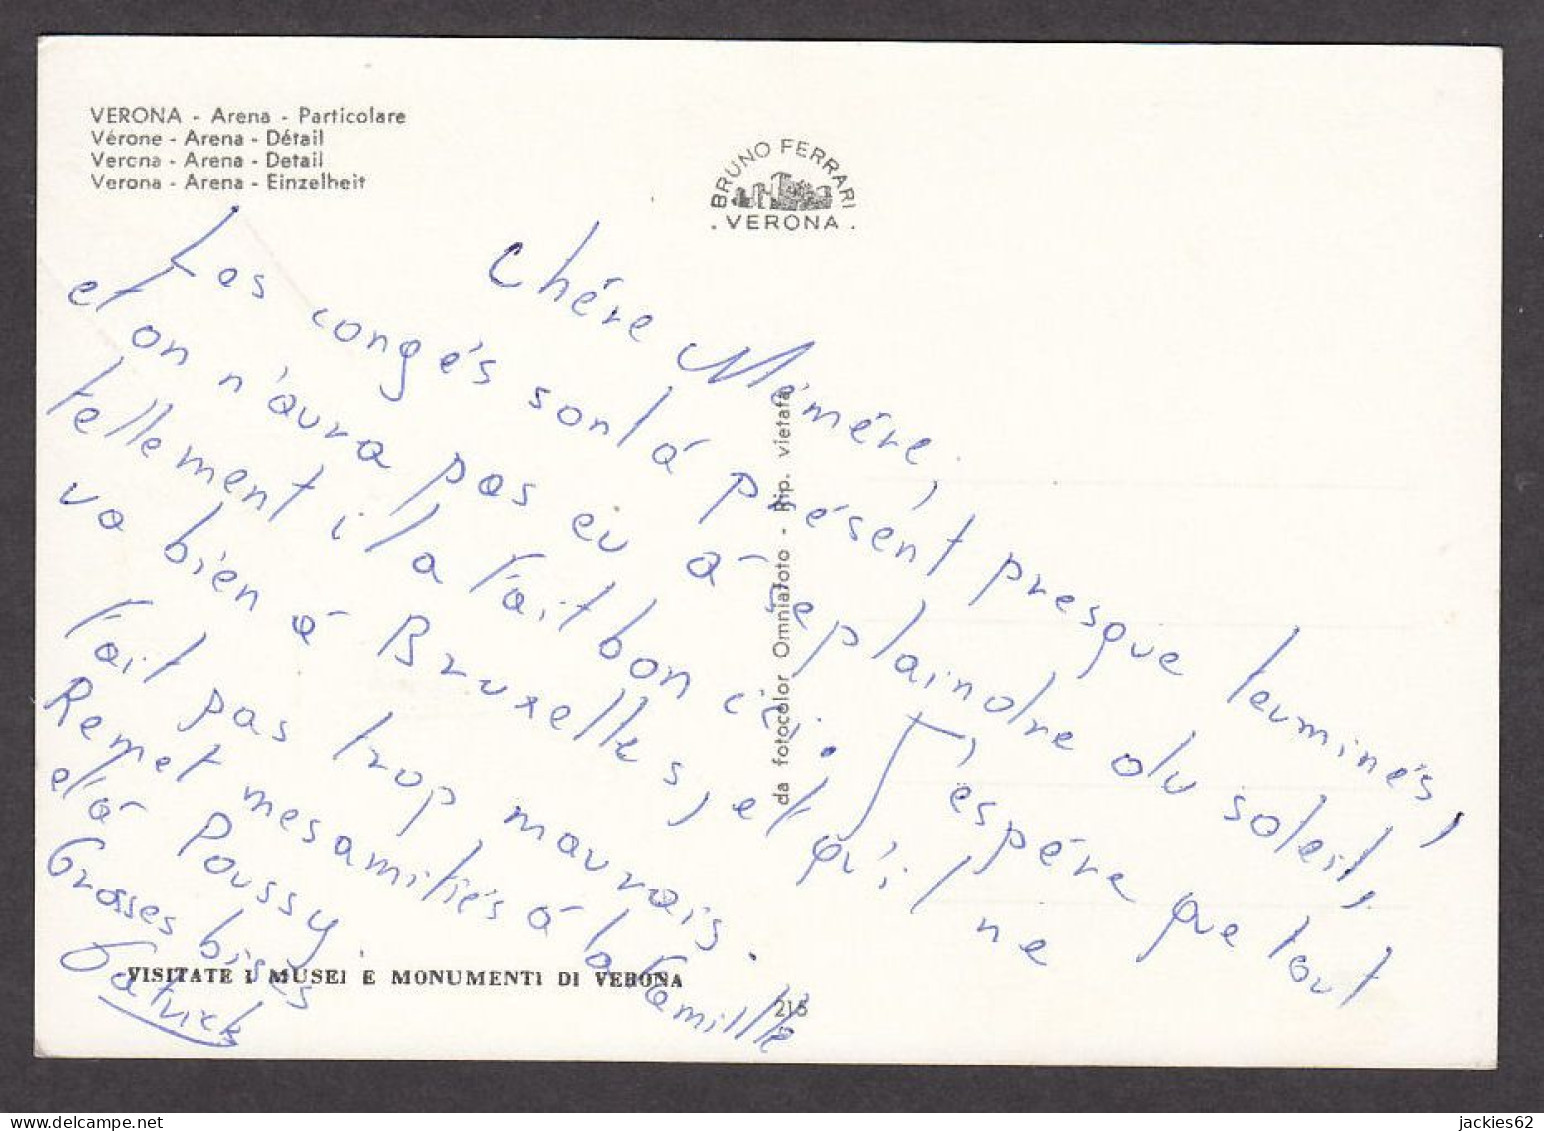 VERONA - Arena - Particolare
Vérone - Arena - Détail
Verona - Arena - Detail
Verona - Arena - Einzelheit
BRUNO FERRARI
. VERONA .
Chére Mémére,
Les congés sont à présent presque terminés,
et on n'aura pas eu à se plaindre du soleil,
tellement il a fait bon ici. J'espére que tout
va bien à Bruxelles, et qu'il ne
fait pas trop mauvais.
Remet mes amitiés à la famille
et à Poussy.
Grosses bises
Patrick
da fotocolor Omniafoto - Rip. vietata
VISITATE I MUSEI E MONUMENTI DI VERONA
215
jackies62